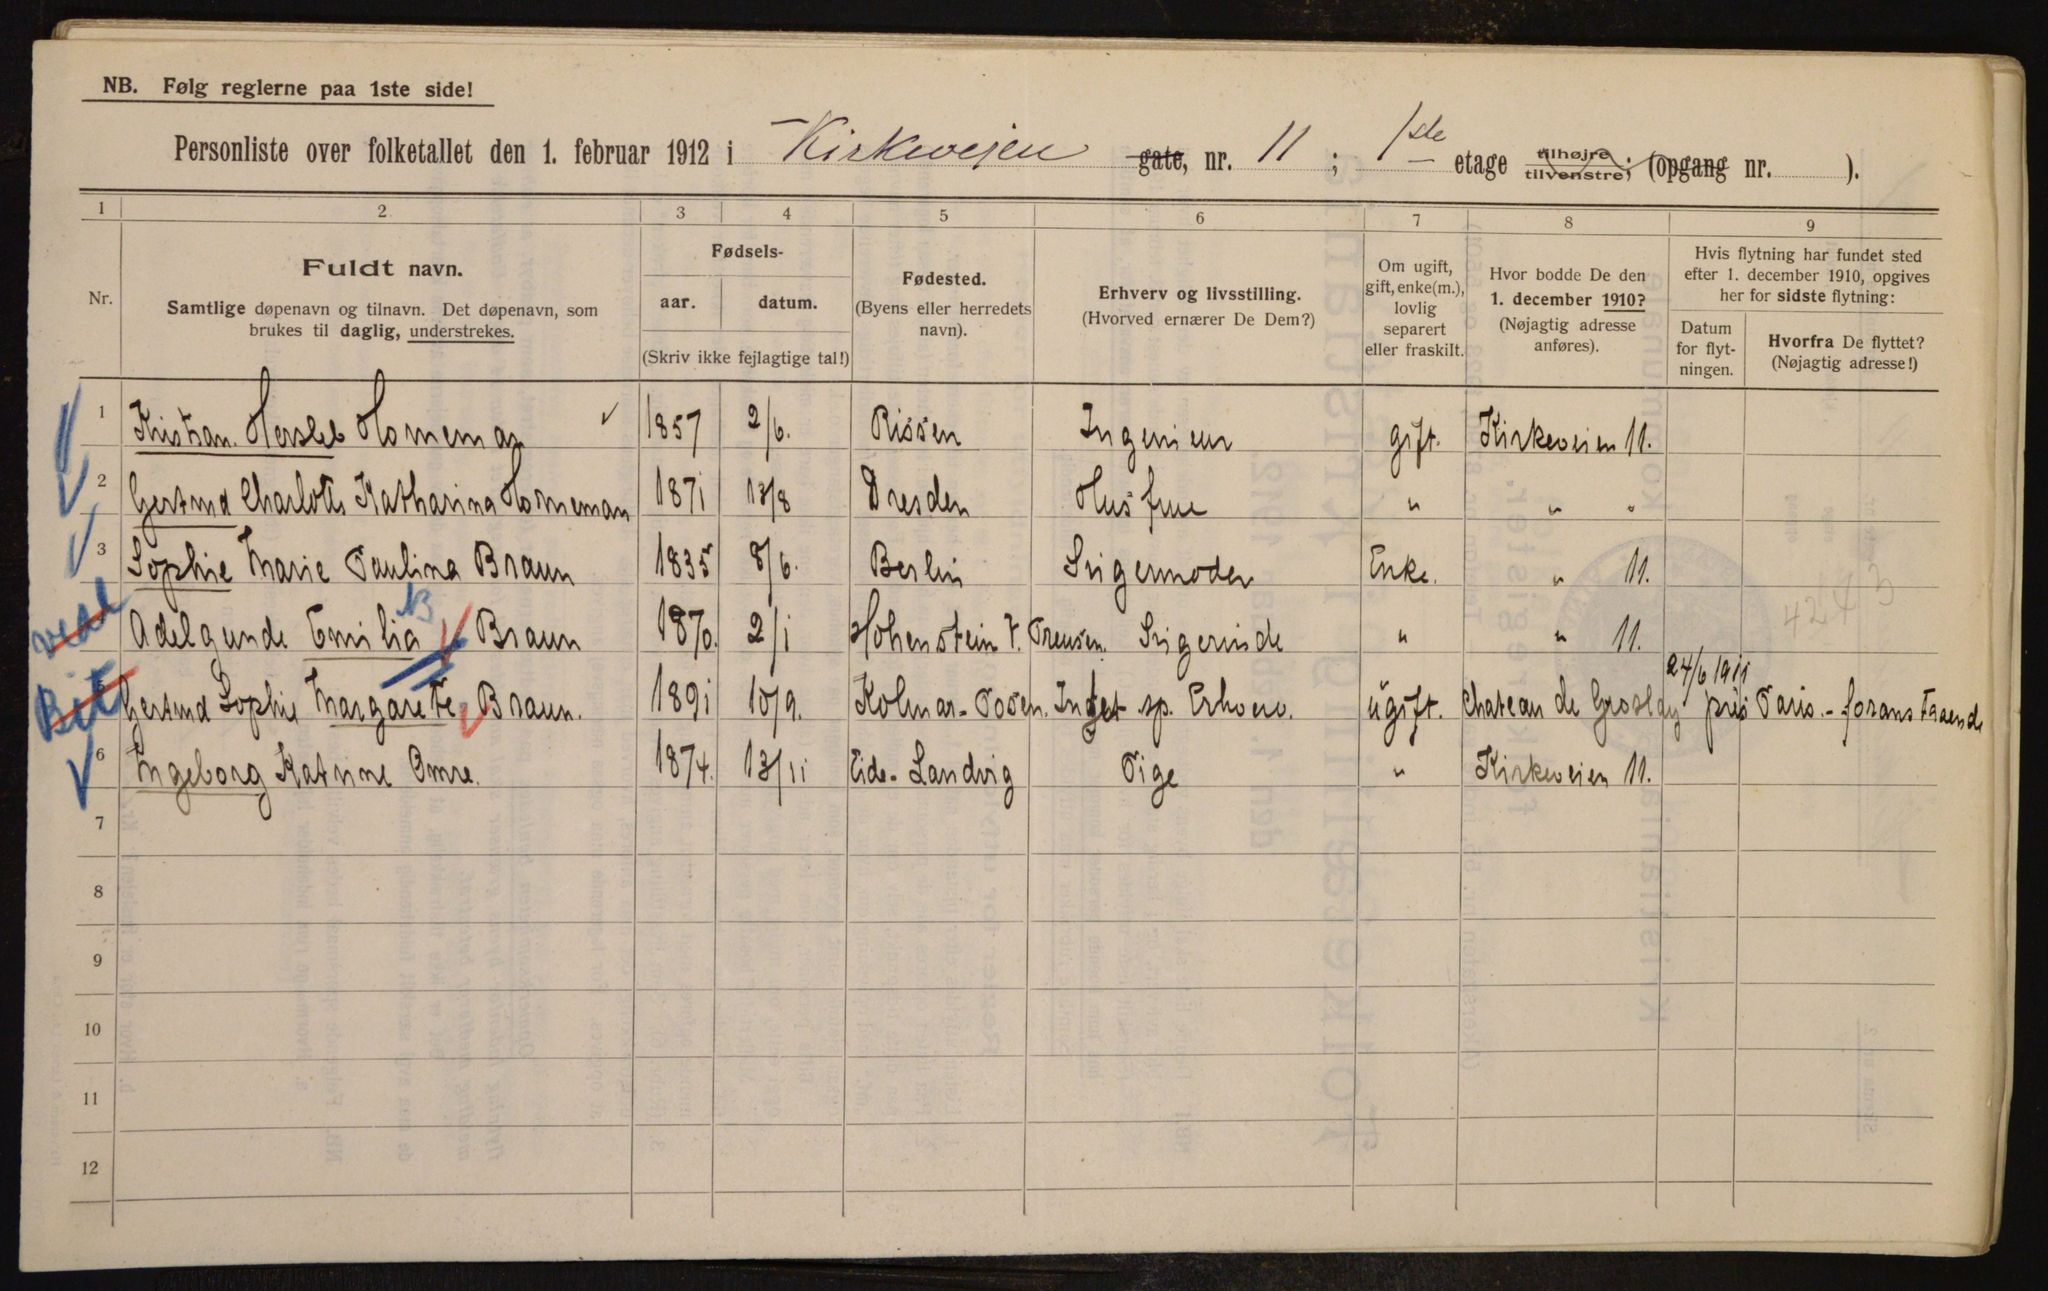 NB. Følg reglerne paa 1ste side!
Personliste over folketallet den 1. februar 1912 i Kirkeveien gate, nr. 11 ; 1ste etage tilhøjre tilvenstre; (opgang nr. ).
1 2 3 4 5 6 7 8 9
Nr.
Fuldt navn.
Samtlige døpenavn og tilnavn. Det døpenavn, som
brukes til daglig, understrekes.
Fødsels-
aar. datum.
(Skriv ikke fejlagtige tal!)
Fødested.
(Byens eller herredets
navn).
Erhverv og livsstilling.
(Hvorved ernærer De Dem?)
Om ugift,
gift, enke(m.),
lovlig
separert
eller fraskilt.
Hvor bodde De den
1. december 1910?
(Nøjagtig adresse
anføres).
Hvis flytning har fundet sted
efter 1. december 1910, opgives
her for sidste flytning:
Datum
for flyt-
ningen.
Hvorfra De flyttet?
(Nøjagtig adresse!)
1 Kristian Hersleb Horneman 1857 2/6. Rissen Ingeniør gift. Kirkeveien 11.
2 Gertrud Charlotte Katharina Horneman 1871 13/8 Dresden Husfrue " " "
3 Sophie Marie Paulina Braun 1835 8/6. Berlin Svigermoder Enke. " 11.
Adelgunde Emilia Braun 1870. 2/1 Hohenstein i. Preusen. Svigerinde " " 11.
24/6 1911
5 Gertrud Sophie Margarete Braun. 1891 10/9. Kolmar-Posen. Intet sp. Erhverv. ugift. Chateau de près Paris.-
6 Ingeborg Katrine Omre. 1874. 13/11 Eide-Landvig Pige " Kirkeveien 11.
7
8
9
10
11
12